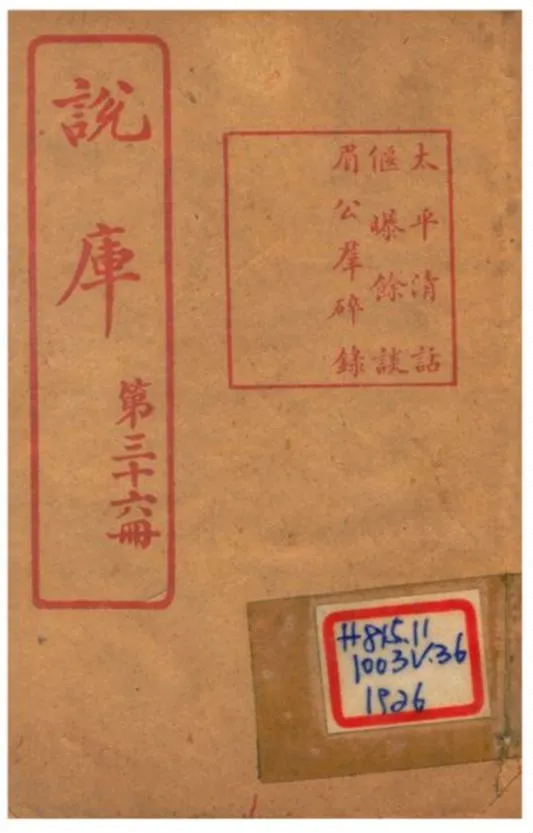 太平清話
偃曝餘談
眉公羣碎錄
說庫
第三十六冊
H815.11
1003V.36
1926